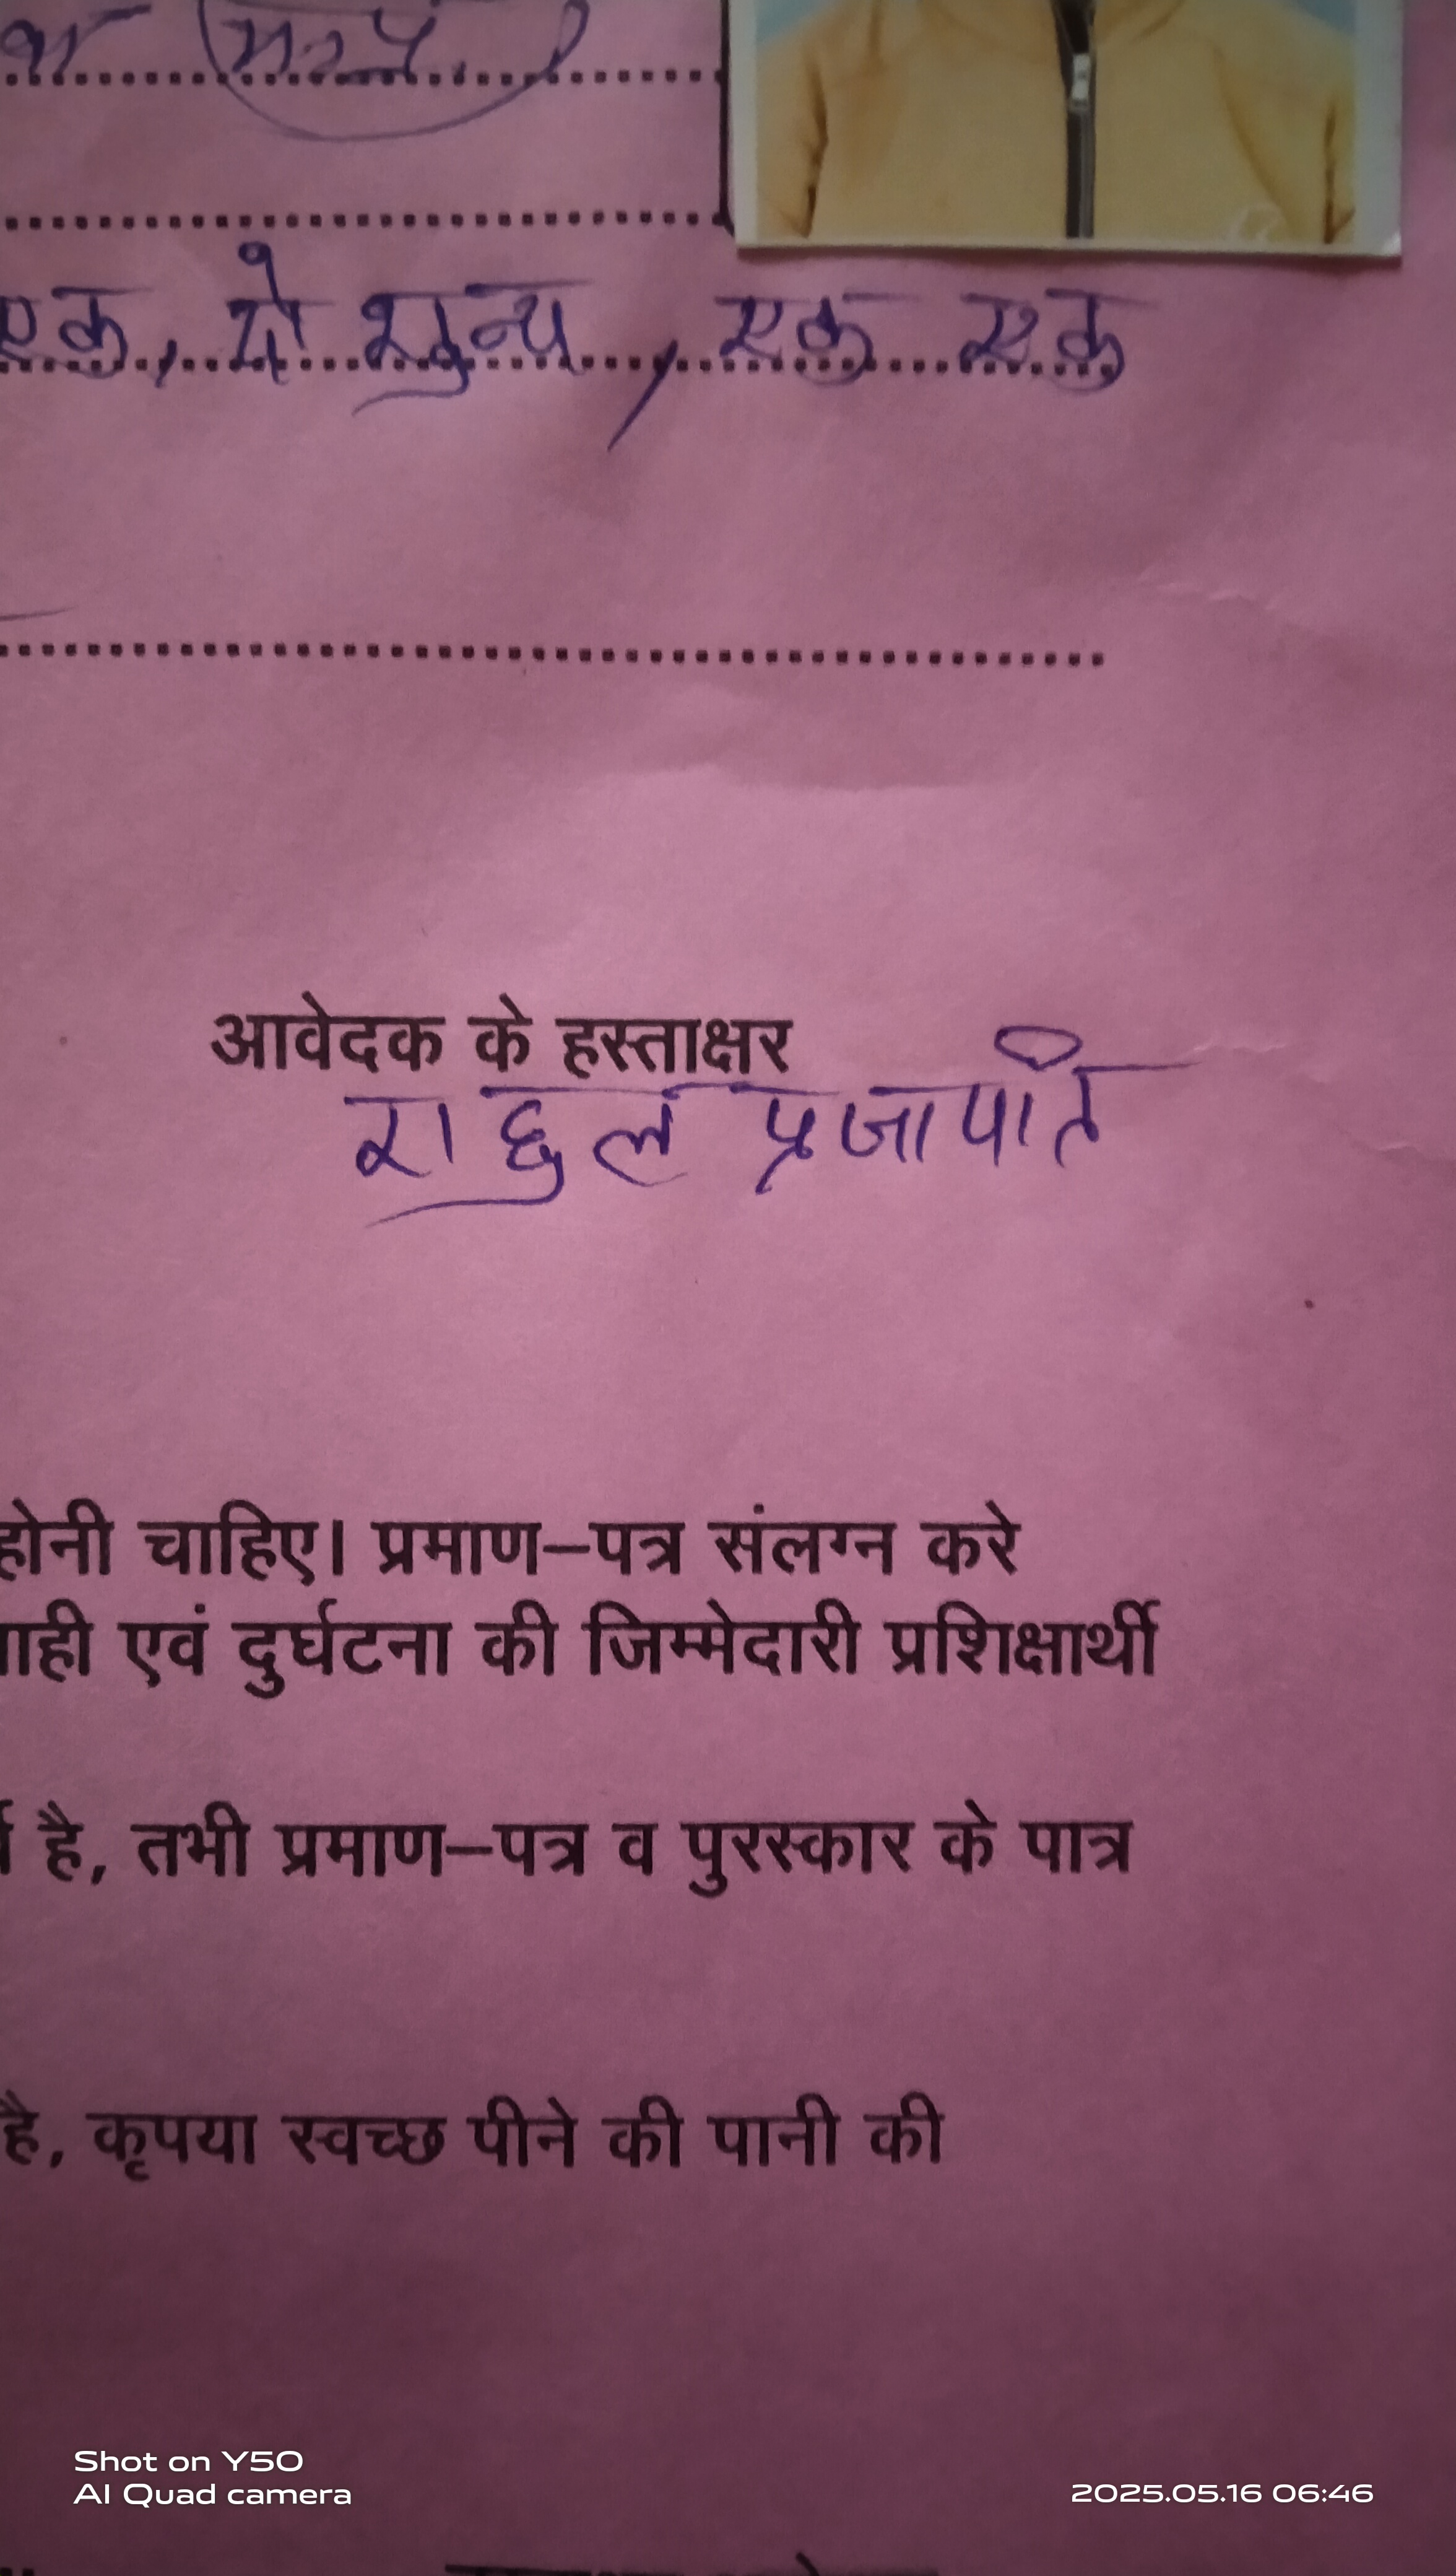 एक, दो शुन्य, एक एक
आवेदक के हस्ताक्षर
राहुल प्रजापति
होनी चाहिए। प्रमाण–पत्र संलग्न करे
एवं दुर्घटना की जिम्मेदारी प्रशिक्षार्थी
है, तभी प्रमाण–पत्र व पुरस्कार के पात्र
है, कृपया स्वच्छ पीने की पानी की
Shot on Y50
AI Quad camera
2025.05.16 06:46